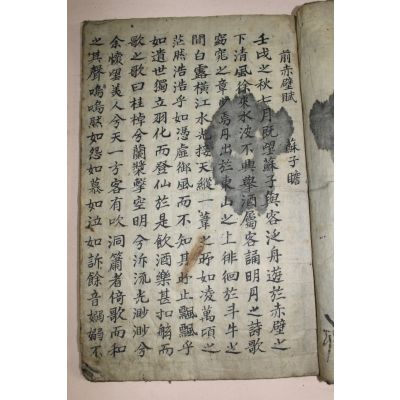 前赤壁賦 蘇子瞻
壬戌之秋七月既望蘇子與客泛舟遊於赤壁之
下清風徐來水波不興擧酒属客誦明月之詩歌
窈窕之章焉月出於東山之上徘徊於斗牛之
間白露橫江水光接天縱一葦之所如凌萬頃之
茫然浩浩乎如憑虛御風而不知其所止飄飄乎
如遺世獨立羽化而登仙於是飮酒樂甚扣舷而
歌之歌曰桂棹兮蘭槳擊空明兮泝流光渺渺兮
余懷望美人兮天一方客有吹洞簫者倚歌而和
之其聲嗚嗚然如怨如慕如泣如訴餘音嫋嫋不